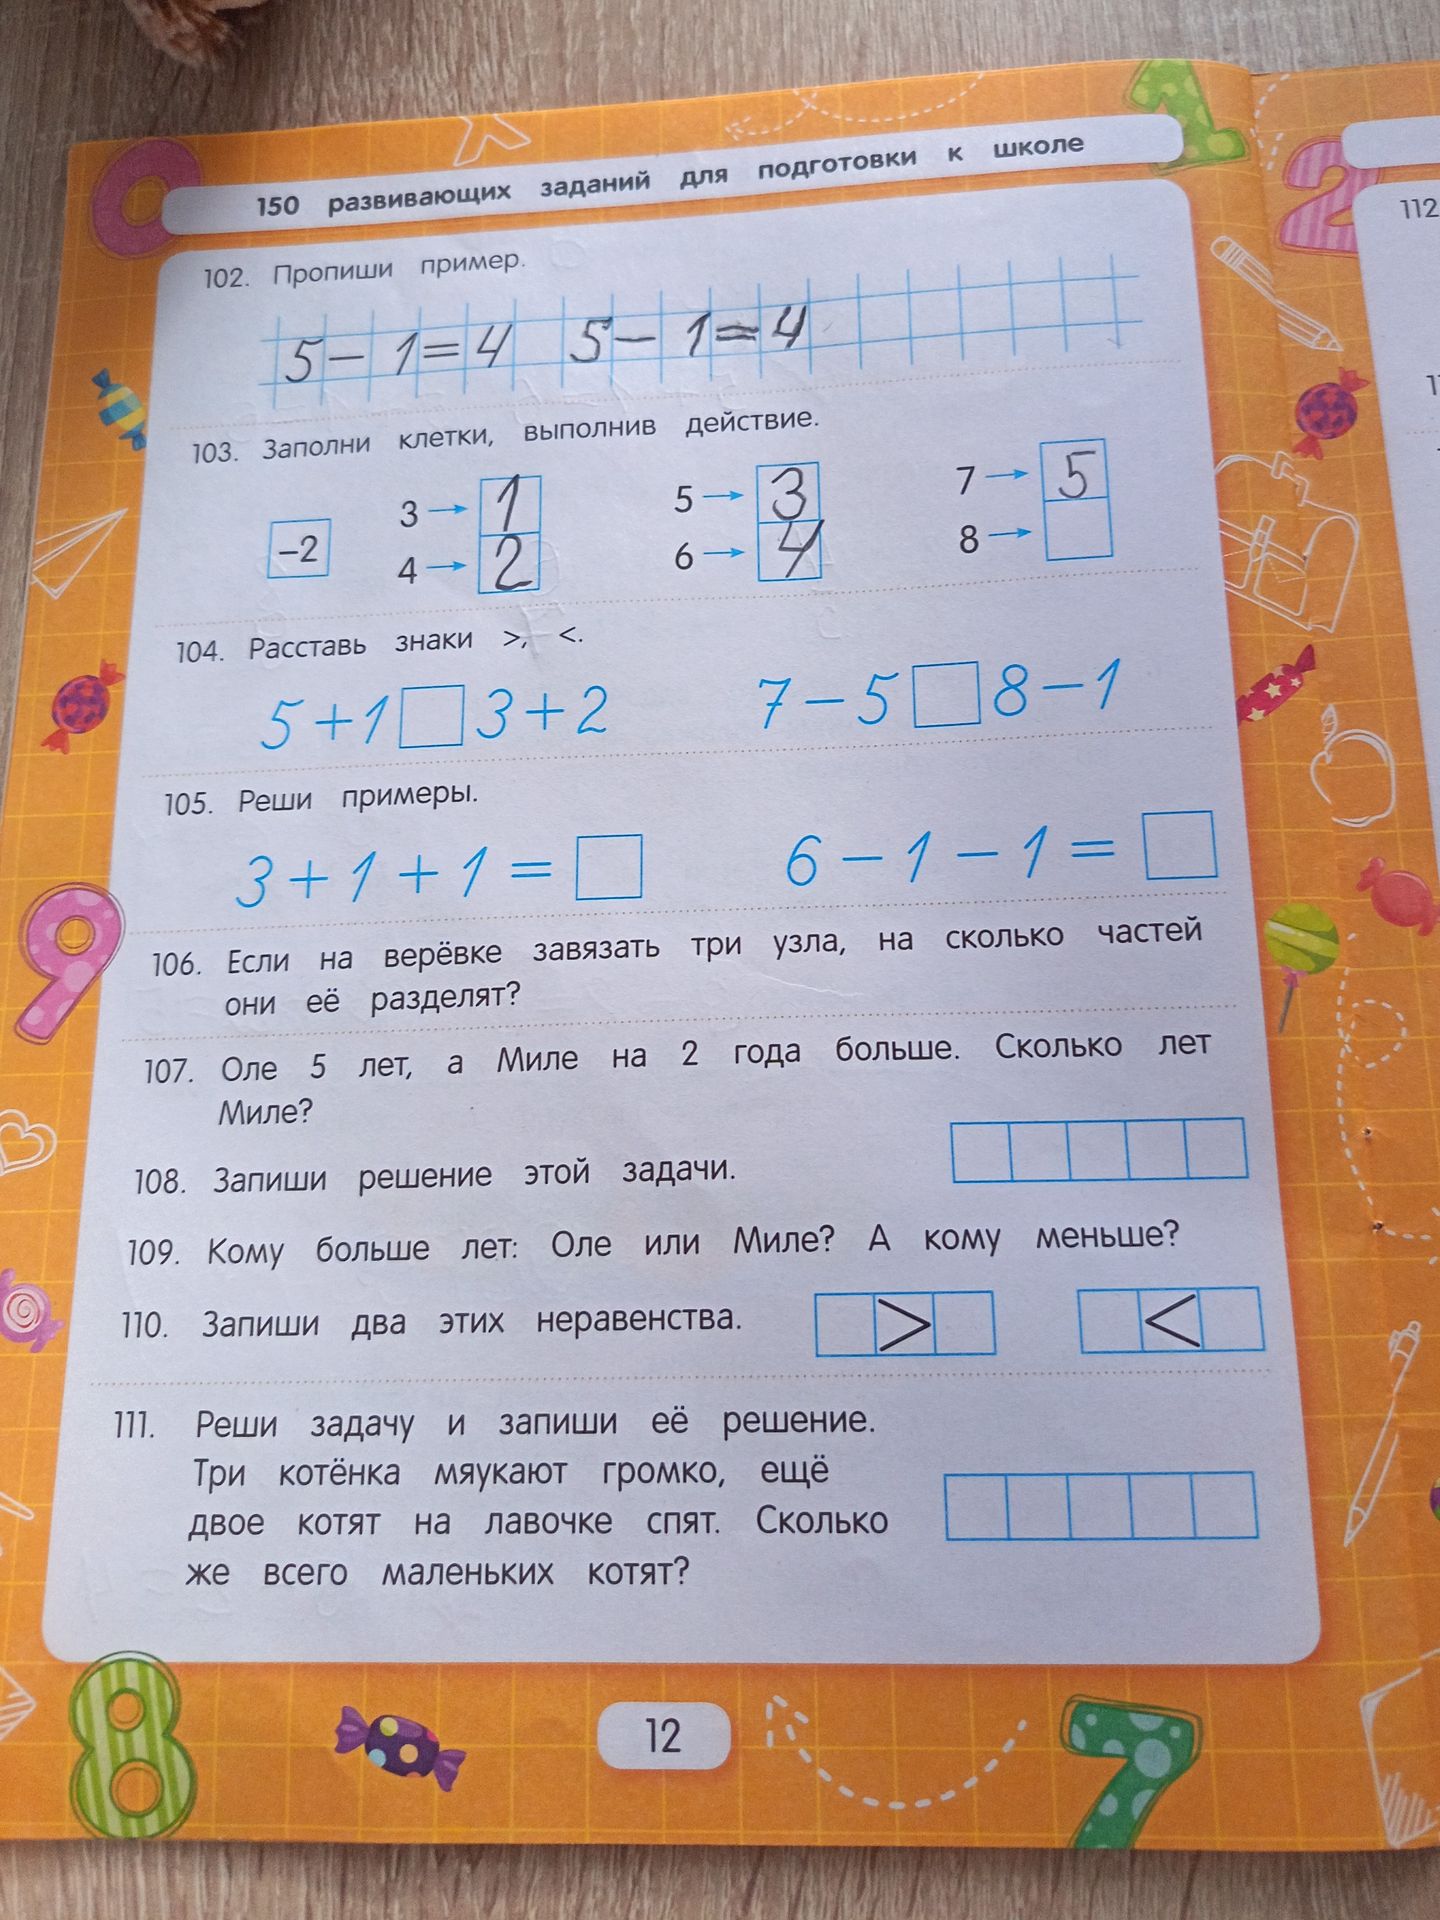 150 развивающих заданий для подготовки к школе
102. Пропиши пример.
5 – 1 = 4 5 – 1 = 4
103. Заполни клетки, выполнив действие.
–2 3 → 1 5 → 3 7 → 5
4 → 2 6 → 4 8 →
104. Расставь знаки >, <.
5 + 1 3 + 2 7 – 5 8 – 1
105. Реши примеры.
3 + 1 + 1 = 6 – 1 – 1 =
106. Если на верёвке завязать три узла, на сколько частей
они её разделят?
107. Оле 5 лет, а Миле на 2 года больше. Сколько лет
Миле?
108. Запиши решение этой задачи.
109. Кому больше лет: Оле или Миле? А кому меньше?
110. Запиши два этих неравенства. > <
111. Реши задачу и запиши её решение.
Три котёнка мяукают громко, ещё
двое котят на лавочке спят. Сколько
же всего маленьких котят?
12
0
1
2
9
8
7
112